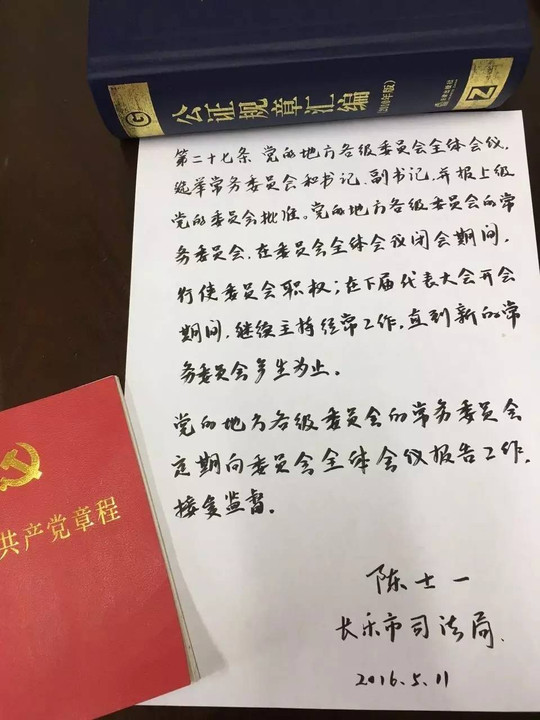 公证规章汇编
(2010年版)
第二十七条 党的地方各级委员会全体会议,
选举常务委员会和书记、副书记,并报上级
党的委员会批准。党的地方各级委员会的常
务委员会,在委员会全体会议闭会期间,
行使委员会职权;在下届代表大会开会
期间,继续主持经常工作,直到新的常
务委员会产生为止。
党的地方各级委员会的常务委员会
定期向委员会全体会议报告工作,
接受监督。
共产党章程
陈士一
长乐市司法局.
2016.5.11